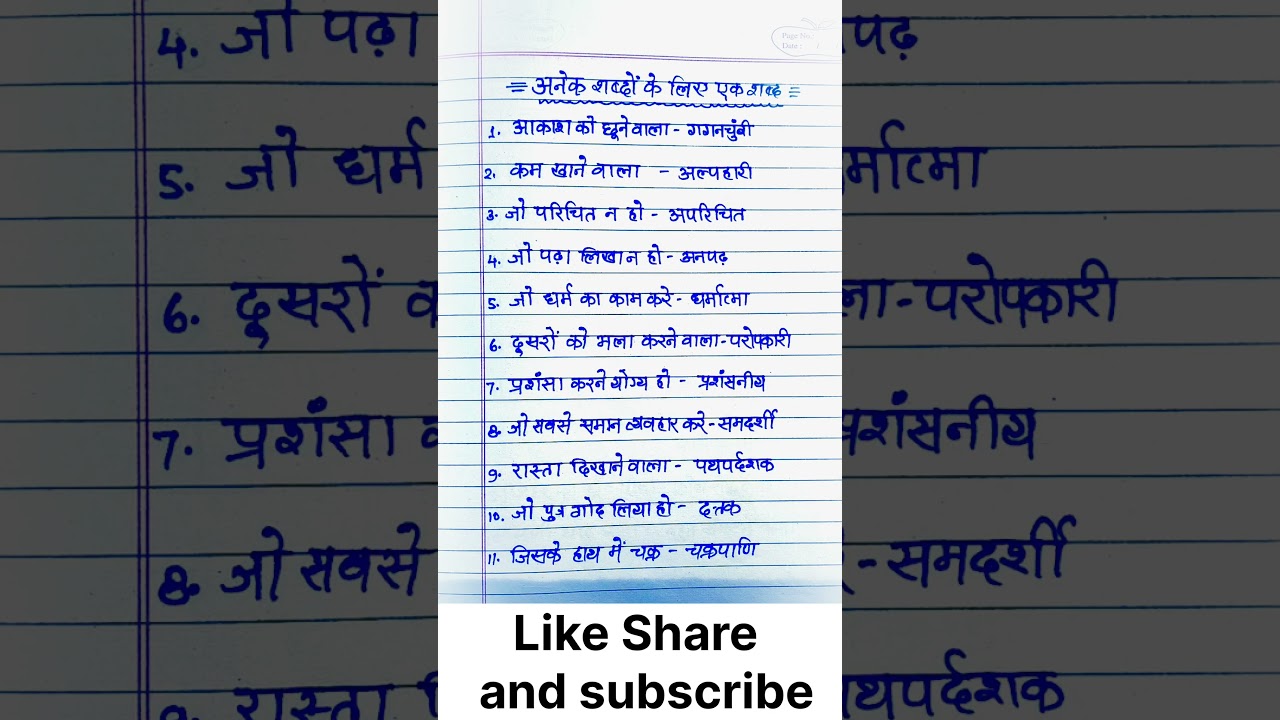 Page No.:
Date: / /
= अनेक शब्दों के लिए एक शब्द =
1. आकाश को छूने वाला - गगनचुंबी
2. कम खाने वाला - अल्पहारी
3. जो परिचित न हो - अपरिचित
4. जो पढ़ा लिखा न हो - अनपढ़
5. जो धर्म का काम करे - धर्मात्मा
6. दूसरों को भला करने वाला - परोपकारी
7. प्रशंसा करने योग्य हो - प्रशंसनीय
8. जो सबसे समान व्यवहार करे - समदर्शी
9. रास्ता दिखाने वाला - पथपर्दशक
10. जो पुत्र गोद लिया हो - दत्तक
11. जिसके हाथ में चक्र - चक्रपाणि
Like Share
and subscribe
4. जो पढ़ा
5. जो धर्म
6. दूसरों
7. प्रशंसा
8. जो सबसे
9. रास्ता
पढ़
र्मात्मा
ला - परोपकारी
प्रशंसनीय
- समदर्शी
पथपर्दशक